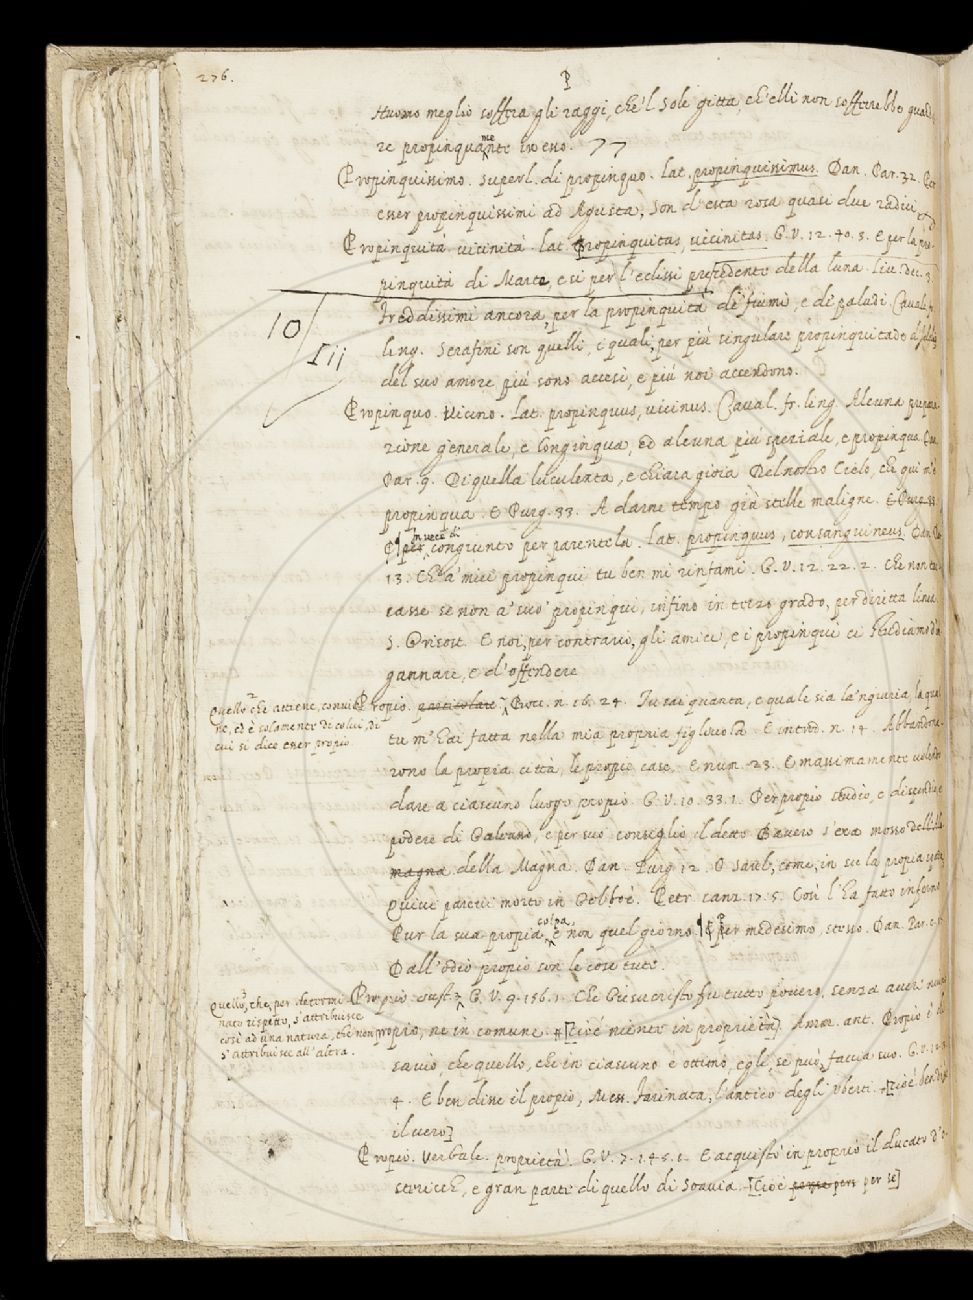 276.
P
Huomo meglio soffra gli raggi, che'l Sole gitta, ch'elli non soffrirebbe guarda
re propinquamente in esso. 77
Propinquissimo. superl. di propinquo. Lat. propinquissimus. Dan. Par. 32. Per
esser propinquissimi ad Agusta, Son d'esta rosa quasi due radici
Propinquità. vicinità. Lat. propinquitas, vicinitas. G.V. 12. 40. 5. E per la pro-
pinquità di Marte, e si per l'eclissi precedente della luna. Liv. Dec. 3.
Freddissimi ancora, per la propinquità de' fiumi, e di paludi. Caval. fr.
10/
ling. Serafini son quelli, i quali, per più singulare propinquitade
III
del suo amore più sono accesi, e più noi accendono.
Propinquo. Vicino. Lat. propinquus, vicinus. Caval. fr. ling. Alcuna prepara
zione generale, e longinqua, ed alcuna più speziale, e propinqua. Dan.
Par. 9. Di quella luculenta, e chiara gioia Del nostro Cielo, che qui m'è
propinqua. E Purg. 33. A darne tempo già stelle maligne. E Purg. 33.
P per in vece di congiunto per parentela. Lat. propinquus, consanguineus. Dan.
13. Ch'a' miei propinqui tu ben mi rinfami. G.V. 12. 22. 2. Che non toc
casse se non a' suo' propinqui, infino in terzo grado, per diritta linea
S. Grisost. E noi, per contrario, gli amici, e i propinqui ci studiamo d'in
gannare, e d'offendere
Quello che attiene, convie
ne, ed è solamente di colui, di
cui si dice esser propio
Propio. particolare. Bocc. n. 16. 24. Tu sai quanta, e quale sia la 'ngiuria, la qual
tu m'hai fatta nella mia propria figliuola. E introd. n. 14. Abbandona
rono la propia città, le propie case. E num. 23. E massimamente volendo
dare a ciascuno luogo propio. G.V. 10. 33. 1. Per propio studio, e dispendio
podere di Galeano, e per suo consiglio, il detto Bavero s'era mosso dell'Ala
magna della Magna. Dan. Purg. 12. O Saul, come, in su la propia spada
Quivi parevi morto in Gelboè. Petr. canz. 17. 5. Così l'ha fatto infermo
Pur la sua propia colpa, e non quel giorno. P per medesimo, stesso. Dan. Par.
Dall'odio propio son le cose tute.
Quello, che, per determi
nato rispetto, s'attribuisce
così ad una natura, che non
s'attribuisce all'altra.
Propio sust. G.V. 9. 156. 1. Che Giesu cristo fu tutto povero, senza aver nulla
propio, ne in comune. [cioè niente in proprietà] Amm. ant. Propio è del
savio, che quello, che in ciascuno è ottimo, egli, se può, faccia suo. G.V. 12.
4. E ben disse il propio, Mess. Farinata, l'antico degli Uberti. [cioè ben disse
il vero]
Propio. Verbale. proprietà. G.V. 7. 145. 1. E acquistò in proprio il ducato d'O
sterich, e gran parte di quello di Soavia. [cioè per se]